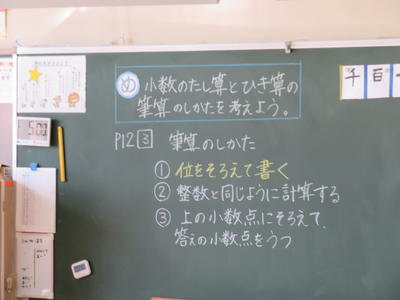 め 小数のたし算とひき算の
筆算のしかたを考えよう。
千 百 十
P12 3 筆算のしかた
① 位をそろえて書く
② 整数と同じように計算する
③ 上の小数点にそろえて、
答えの小数点をうつ